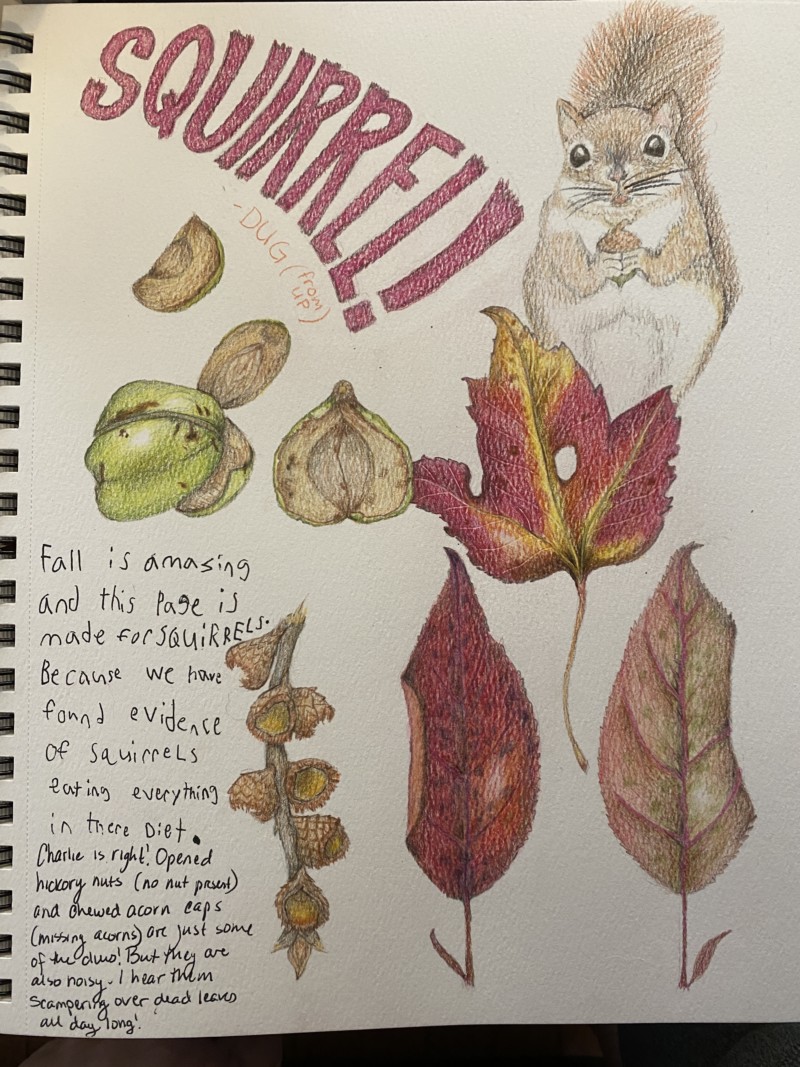 SQUIRREL!
- DUG (from UP)
Fall is amasing
and this Page is
made for SQUiRRELS.
Because we have
found evidence
of Squirrels
eating everything
in there Diet.
Charlie is right! Opened
hickory nuts (no nut present)
and chewed acorn caps
(missing acorns) are just some
of the clues! But they are
also noisy. I hear them
scampering over dead leaves
all day long!